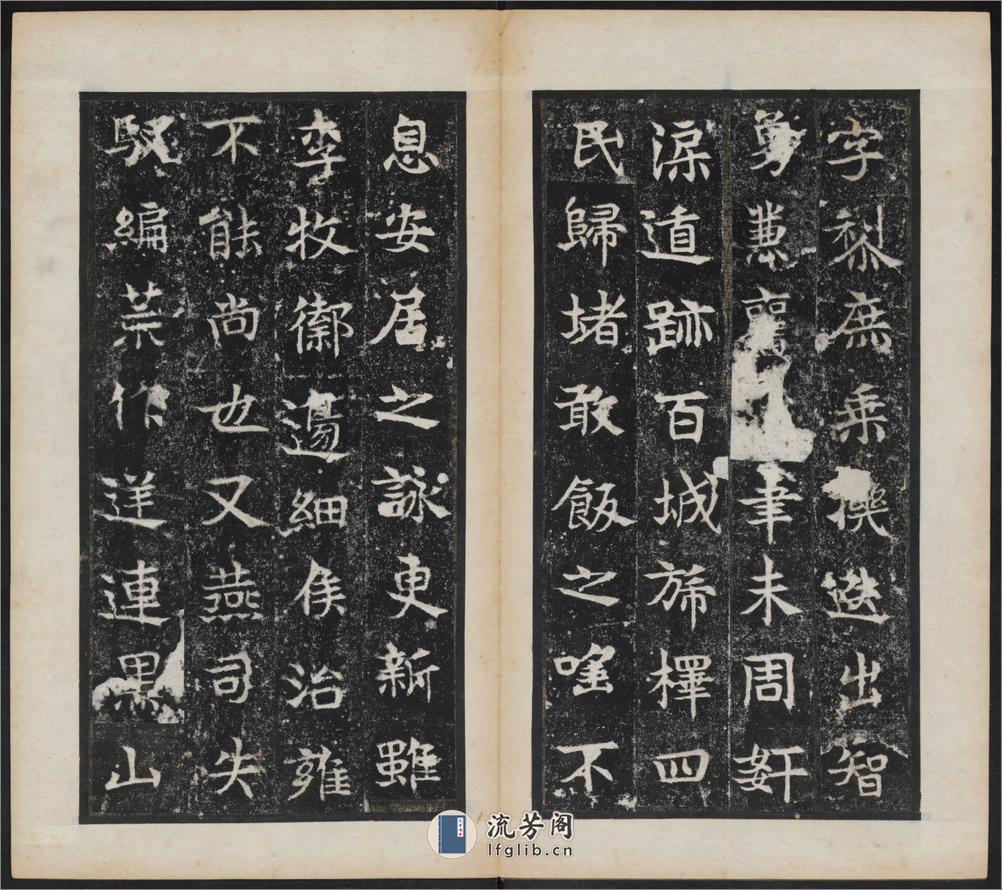 字黎庶乗迭出智
勇兼聿未周奸
深遁跡百城斾擇四
民歸堵敢飯之嗟不
息安居之詠更新雖
李牧禦邊細侯治雍
不能尚也又燕司失
馭編荒作逆連黑山
流芳阁
lfglib.cn